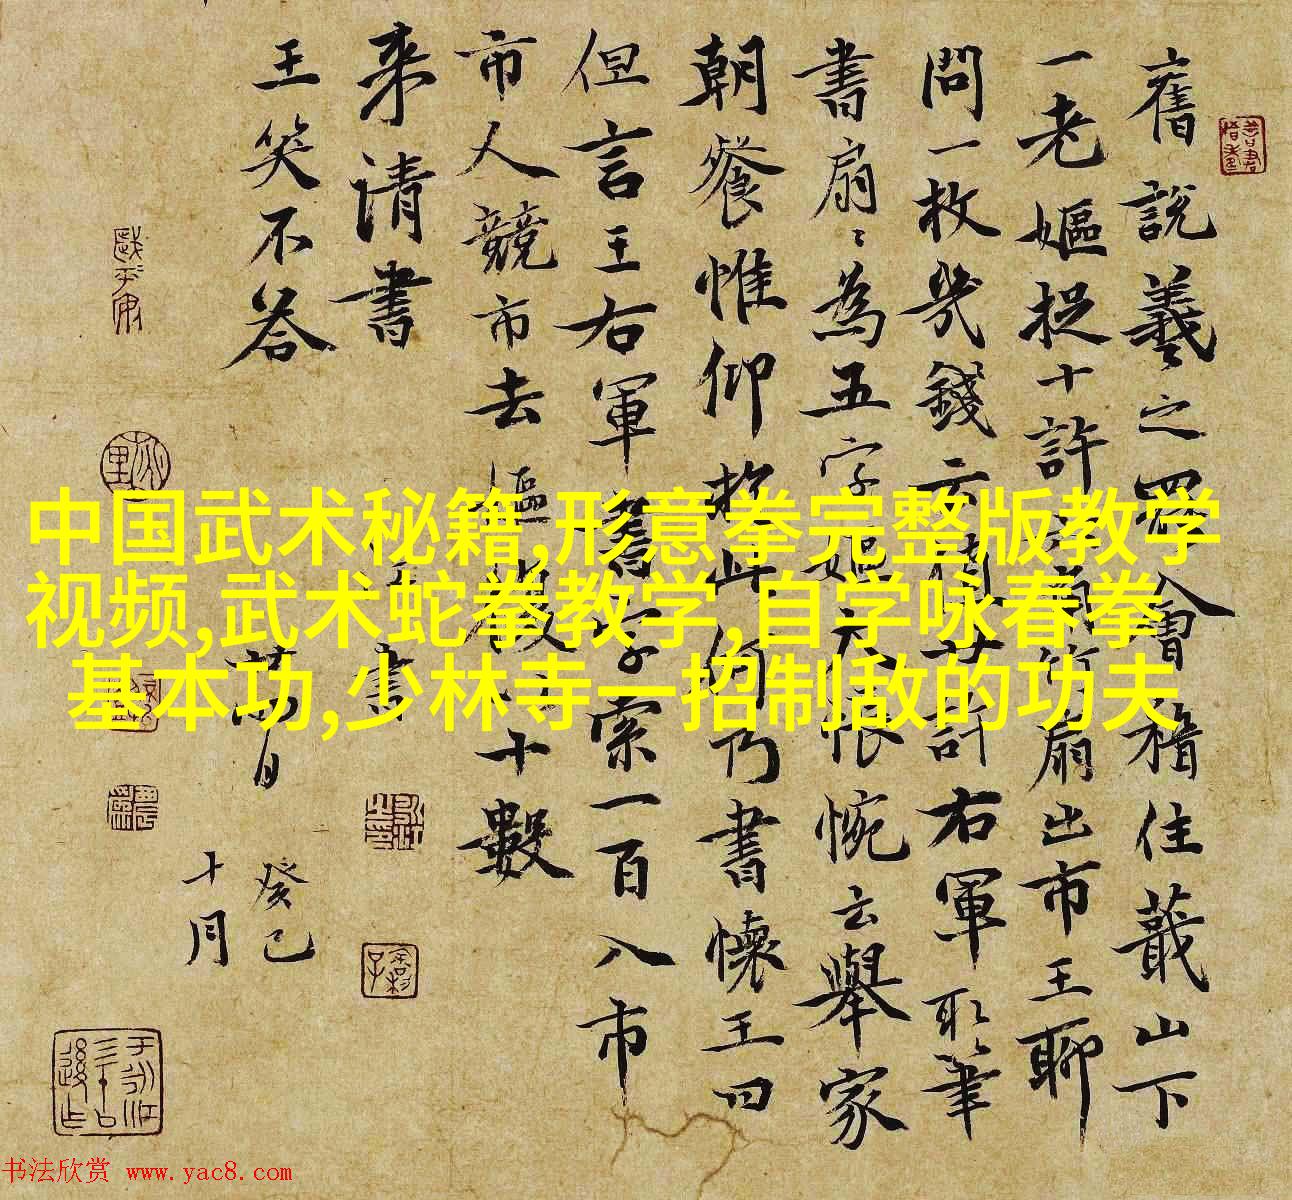 舊說羲之罷會稽住蕺山下
一老嫗捉十許
扇出市王聊
問一枚幾錢云
許右軍取筆
書扇扇為五字嫗
大悵惋云舉家
朝飱惟仰
於此何乃書懷王曰
但言王右軍
書字索一百入市
市人競市去嫗
十數
来請書
王笑不答
書
癸巳
十月
中国武术秘籍,形意拳完整版教学
视频,武术蛇拳教学,自学咏春拳
基本功,少林寺一招制敌的功夫
书法欣赏 www.yac8.com